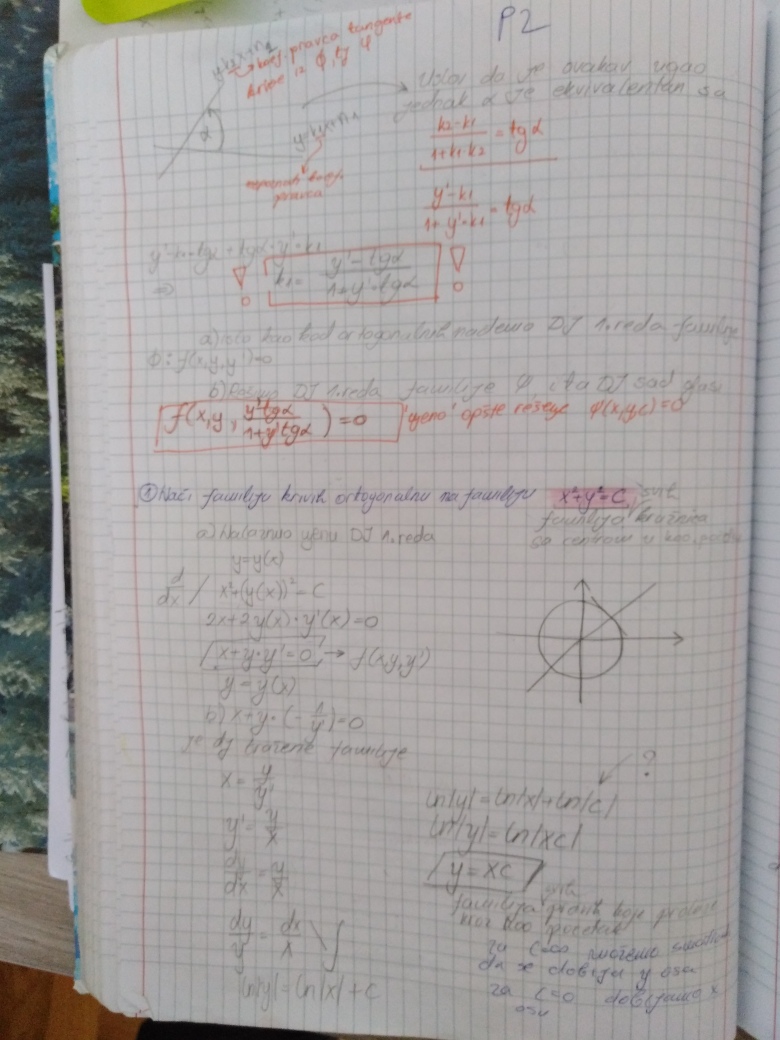 P2
koef. pravca tangente
krive iz φ, tj ψ
Uslov da je ovakav ugao
jednak α je ekvivalentan sa
(k2-k1)/(1+k1·k2) = tgα
α
pravca
(y'-k1)/(1+y'·k1) = tgα
y'-k1=tgα+tgα·y'·k1
⇒ ! k1= (y'-tgα)/(1+y'·tgα) !
a) isto kao kod ortogonalnih nađemo DJ 1. reda familije
Φ: f(x,y,y')=0
b) DJ 1. reda familije ψ, a DJ sad glasi
f(x,y, (y'-tgα)/(1+y'tgα)) =0 opšte rešenje ψ(x,y,c)=0
① Naći familiju krivih ortogonalnu na familiju x²+y²=C, svih
familija kružnica
sa centrom u koo. početku
a) Nalazimo njenu DJ 1. reda
y=y(x)
d/dx / x²+(y(x))²=C
2x+2y(x)·y'(x)=0
x+y·y'=0 → f(x,y,y')
y=y(x)
b) x+y·(-1/y')=0
je dj tražene familije
x= y/y'
y'= y/x
dy/dx = y/x
dy/y = dx/x \ ∫
ln|y|=ln|x|+c
?
ln|y|=ln|x|+ln|c|
ln|y|=ln|xc|
y=xc
svih
familija pravih koje prolaze
kroz koo početak
za c=∞ možemo smatrati
da se dobija y osa
za c=0 dobijamo x
osu